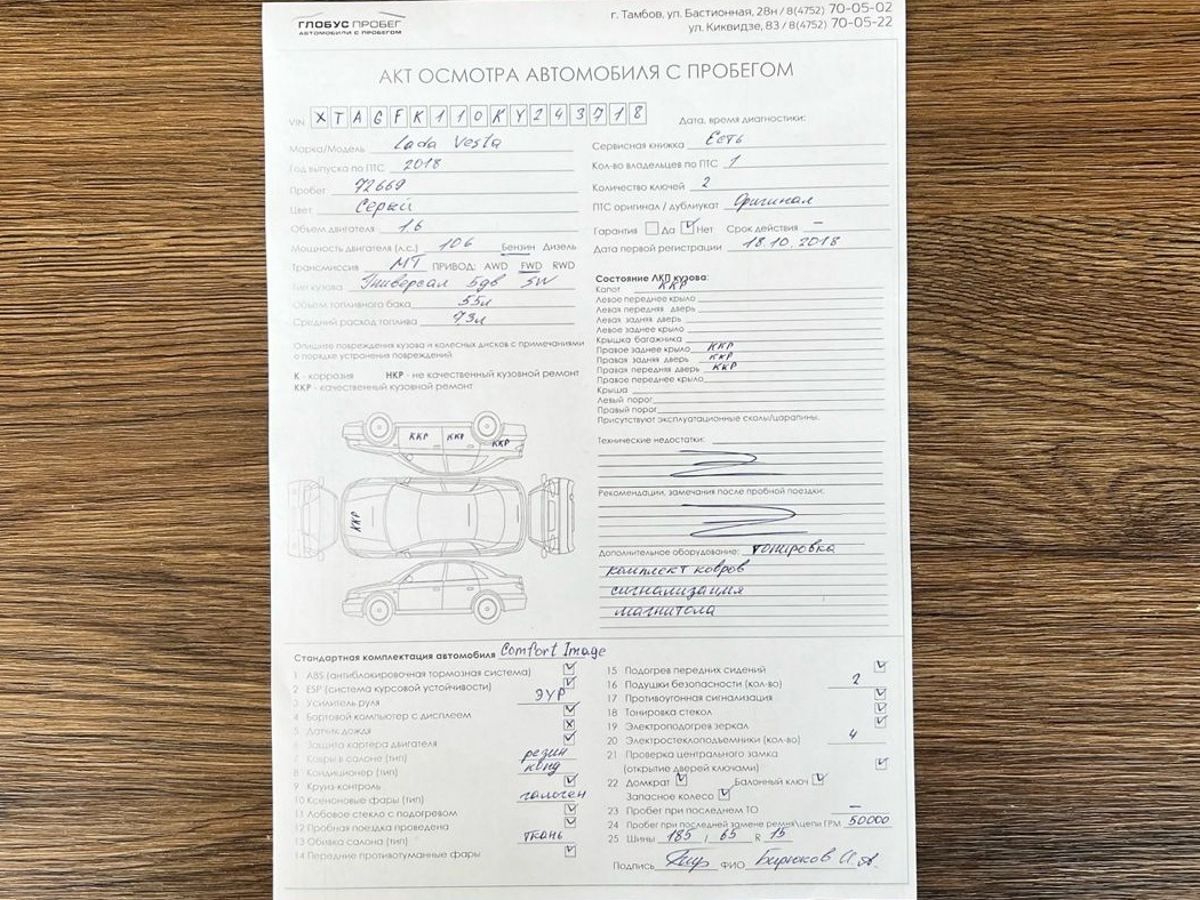 ГЛОБУС ПРОБЕГ
АВТОМОБИЛИ С ПРОБЕГОМ
г. Тамбов, ул. Бастионная, 28н / 8(4752) 70-05-02
ул. Киквидзе, 83 / 8(4752) 70-05-22
АКТ ОСМОТРА АВТОМОБИЛЯ С ПРОБЕГОМ
VIN XTAGFK110KY243718
Дата, время диагностики:
Марка/Модель Lada Vesta
Год выпуска по ПТС 2018
Пробег 72669
Цвет Серый
Объем двигателя 1.6
Мощность двигателя (л.с.) 106 Бензин Дизель
Трансмиссия МТ ПРИВОД: AWD FWD RWD
Тип кузова Универсал 5дв SW
Объем топливного бака 55л
Средний расход топлива 7,3л
Сервисная книжка Есть
Кол-во владельцев по ПТС 1
Количество ключей 2
ПТС оригинал / дубликат Оригинал
Гарантия Да Нет Срок действия –
Дата первой регистрации 18.10.2018
Опишите повреждения кузова и колесных дисков с примечаниями
о порядке устранения повреждений
К - коррозия НКР - не качественный кузовной ремонт
ККР - качественный кузовной ремонт
ККР ККР ККР
ККР
Состояние ЛКП кузова:
Капот ККР
Левое переднее крыло
Левая передняя дверь
Левая задняя дверь
Левое заднее крыло
Крышка багажника
Правое заднее крыло ККР
Правая задняя дверь ККР
Правая передняя дверь ККР
Правое переднее крыло
Крыша
Левый порог
Правый порог
Присутствуют эксплуатационные сколы/царапины.
Технические недостатки:
Рекомендации, замечания после пробной поездки:
Дополнительное оборудование: тонировка
комплект ковров
сигнализация
магнитола
Стандартная комплектация автомобиля Comfort Image
1 ABS (антиблокировочная тормозная система)
2 ESP (система курсовой устойчивости)
3 Усилитель руля ЭУР
4 Бортовой компьютер с дисплеем
5 Датчик дождя
6 Защита картера двигателя
7 Ковры в салоне (тип) резин
8 Кондиционер (тип) конд
9 Круиз-контроль
10 Ксеноновые фары (тип) галоген
11 Лобовое стекло с подогревом
12 Пробная поездка проведена
13 Обивка салона (тип) ткань
14 Передние противотуманные фары
15 Подогрев передних сидений
16 Подушки безопасности (кол-во) 2
17 Противоугонная сигнализация
18 Тонировка стекол
19 Электроподогрев зеркал
20 Электростеклоподъемники (кол-во) 4
21 Проверка центрального замка
(открытие дверей ключами)
22 Домкрат Балонный ключ
Запасное колесо
23 Пробег при последнем ТО –
24 Пробег при последней замене ремня\цепи ГРМ 50000
25 Шины 185 / 65 R 15
Подпись ФИО Бирюков И.А.